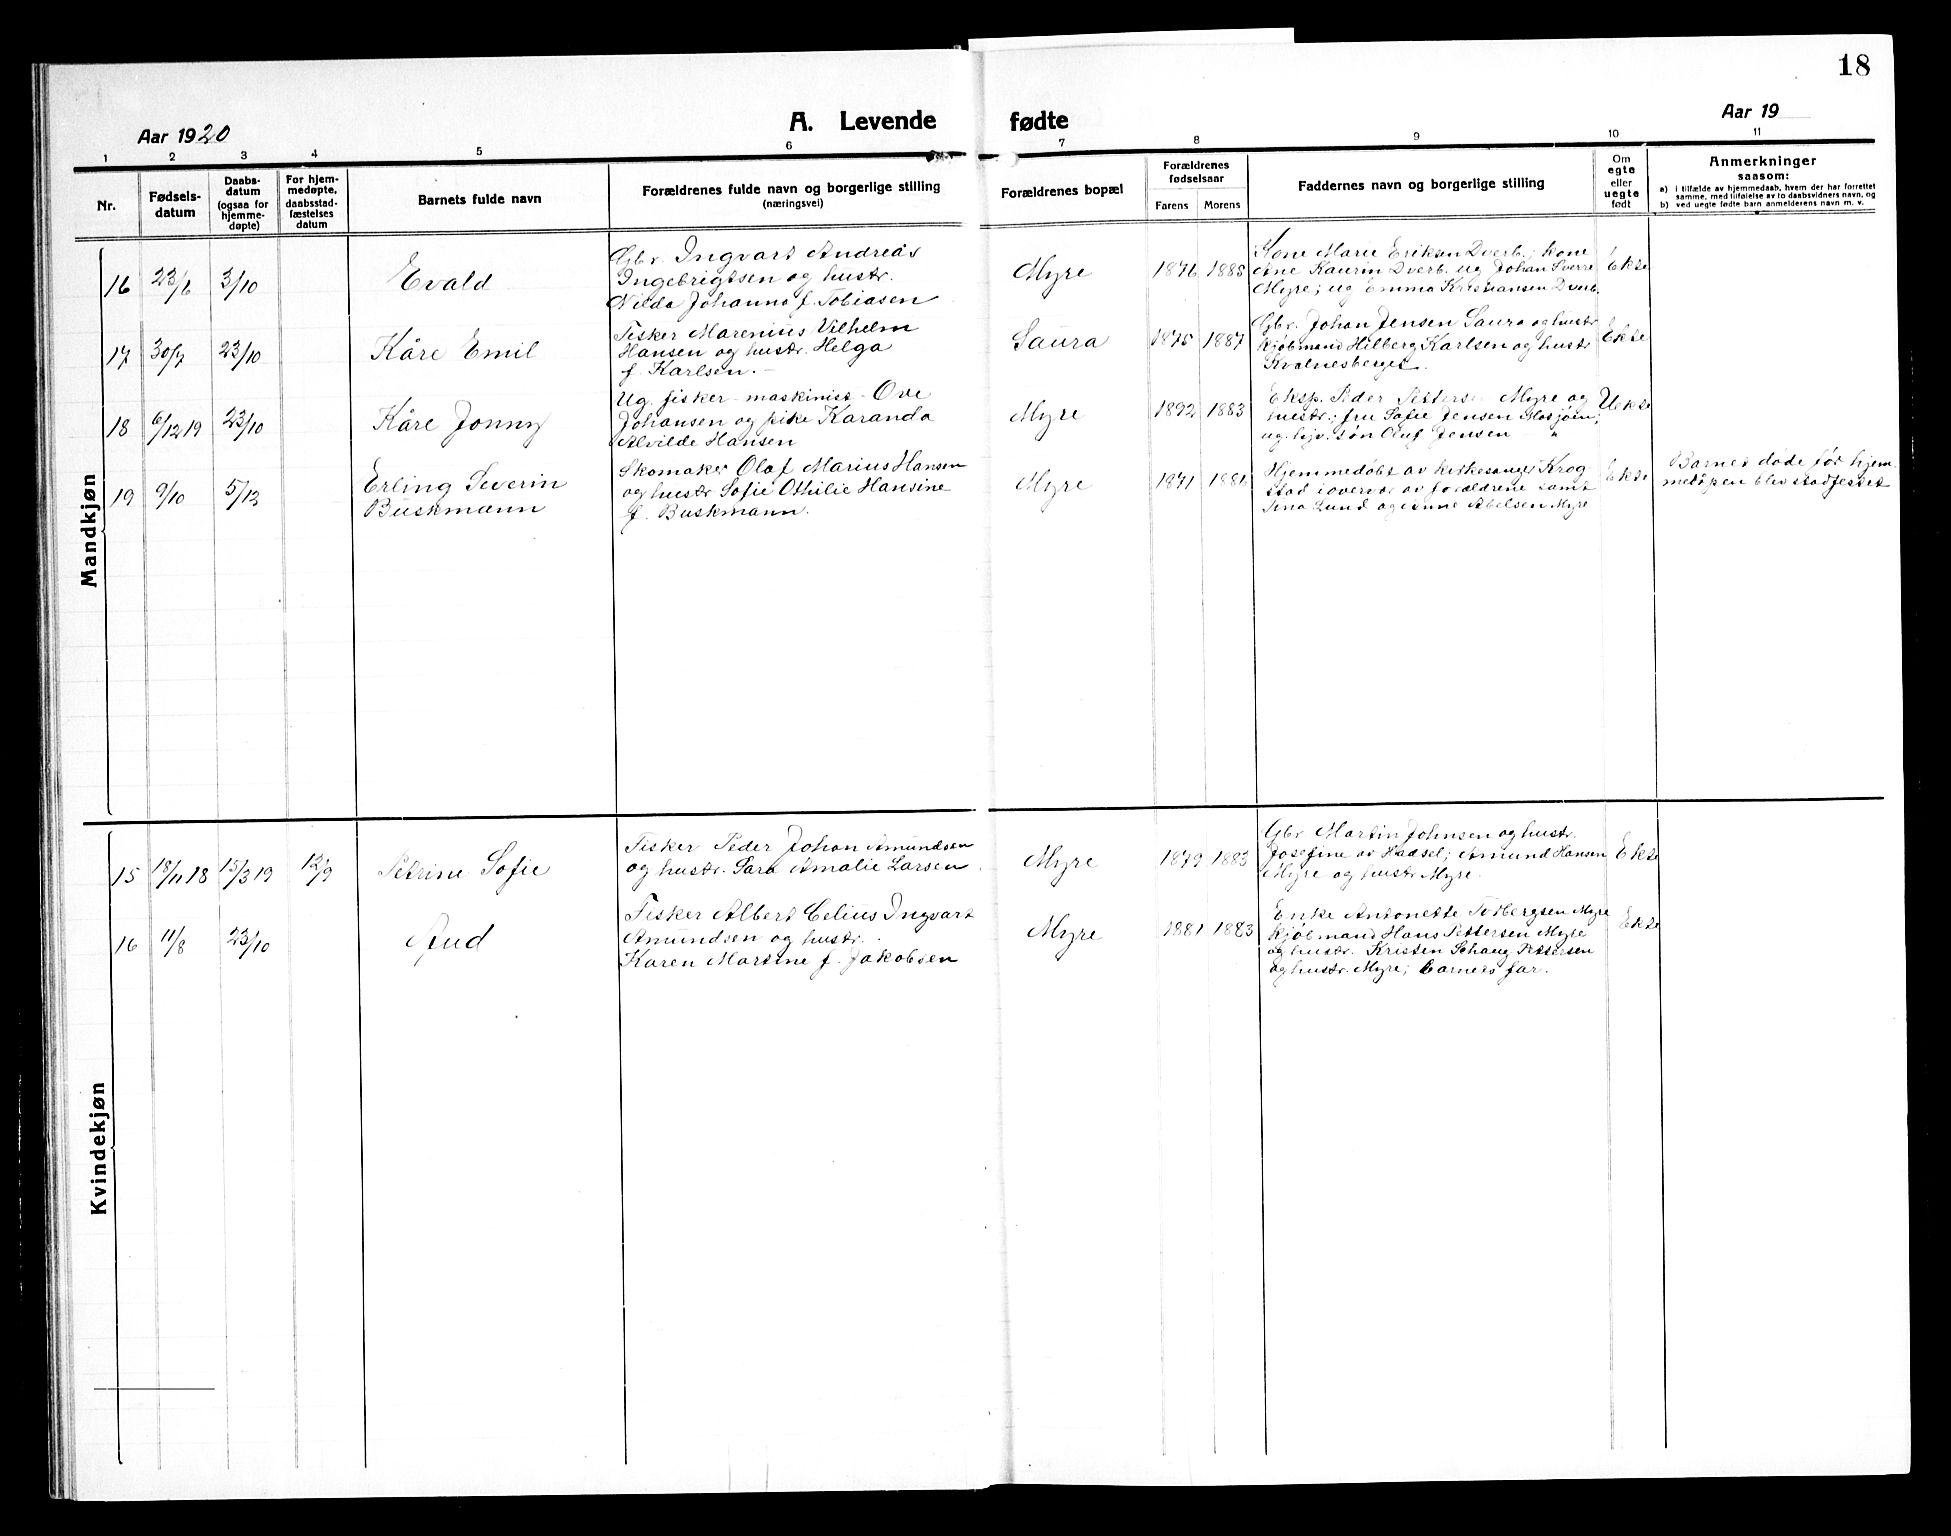 18
Aar 1920
A. Levende fødte
Aar 19
1 2 3 4 5 6 7 8 9 10 11
Nr.
Fødsels-
datum
Daabs-
datum
(ogsaa for
hjemme-
døpte)
For hjem-
medøpte,
daabsstad-
fæstelses
datum
Barnets fulde navn
Forældrenes fulde navn og borgerlige stilling
(næringsvei)
Forældrenes bopæl
Forældrenes
fødselsaar
Farens Morens
Faddernes navn og borgerlige stilling
Om
egte
eller
uegte
født
Anmerkninger
saasom:
a) i tilfælde av hjemmedaab, hvem der har forrettet
samme, med tilføielse av to daabsvidners navn, og
b) ved uegte fødte barn anmelderens navn m. v.
Mandkjøn
16 23/6 3/10 Evald
Gbr. Ingvart Andreas
Ingebrigtsen og hustr.
Nilda Johanna f. Tobiasen
Myre 1876 1885
Kone Marie Eriksen Dverb.; kone
Ane Kaurin Dverb. ug Johan Sverre
Myre; ug Emma Kristiansen Dverb.
Ekte
17 30/7 23/10 Kåre Emil
Fisker Marenius Vilhelm
Hansen og hustr. Helga
f. Karlsen.
Saura 1875 1887
Gbr. Johan Jensen Saura og hustr
kjøbmand Hilberg Karlsen og hustr
Kvalnesberget.
Ekte
18 6/12 19 23/10 Kåre Jonny
Ug. fisker-maskinist Ove
Johansen og pike Karanda
Alvilde Hansen
Myre 1892 1883
Eksp. Peder Petterse Myre og
hustr.; fru Sofie Jensen
ug. hjv. søn Oluf Jensen "
Uekte
19 9/10 5/12 Erling Severin
Buskmann
Skomaker Olaf Marius Hansen
og hustr Sofie Othilie Hansine
f. Buskmann.
Myre 1871 1881
Hjemmedøbt av kirkesanger Krog
stad i overvær av forældrene samt
Tina Lund og Anne Abelsen Myre
Ekte
Barnet døde før hjem
medåpen blev stadfestet
Kvindekjøn
15 18/11 18 15/3 19 12/9 Petrine Sofie
Fisker Peder Johan Amundsen
og hustr. Sara Amalie Larsen
Myre 1879 1883
Gbr Martin Johnsen og hustr.
Josefine av Hadsel; Amund Hansen
Myre og hustr Myre.
Ekte
16 11/8 23/10 Aud
Fisker Albert Celius Ingvart
Amundsen og hustr.
Karen Martine f. Jakobsen
Myre 1881 1883
Enke Antonette Torbergsen Myre
kjøbmand Hans Pettersen Myre
og hustr. Kristen Schaug Pettersen
og hustr. Myre; barnets far.
Ekte